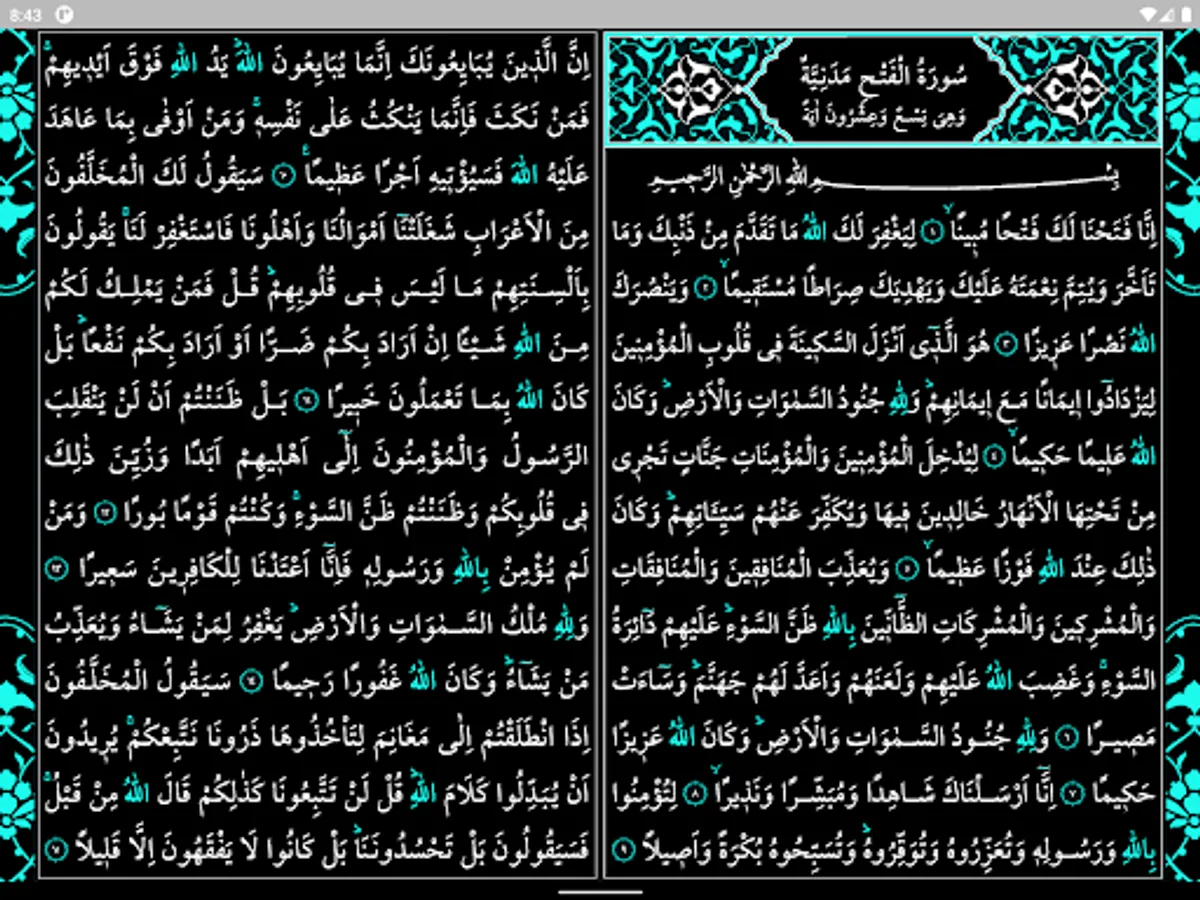 8:43
سُورَةُ الْفَتْحِ مَدَنِيَّةٌ
وَهِىَ تِسْعٌ وَعِشْرُونَ اٰيَةً
بِسْمِ اللهِ الرَّحْمٰنِ الرَّحِيمِ
اِنَّا فَتَحْنَا لَكَ فَتْحًا مُبِينًاۙ ﴿١﴾ لِيَغْفِرَ لَكَ اللهُ مَا تَقَدَّمَ مِنْ ذَنْبِكَ وَمَا
تَاَخَّرَ وَيُتِمَّ نِعْمَتَهُ عَلَيْكَ وَيَهْدِيَكَ صِرَاطًا مُسْتَقِيمًاۙ ﴿٢﴾ وَيَنْصُرَكَ
اللهُ نَصْرًا عَزِيزًا ﴿٣﴾ هُوَ الَّذِٓى اَنْزَلَ السَّكِينَةَ فِى قُلُوبِ الْمُؤْمِنِينَ
لِيَزْدَادُٓوا اِيمَانًا مَعَ اِيمَانِهِمْۜ وَلِلّٰهِ جُنُودُ السَّمٰوَاتِ وَالْاَرْضِۜ وَكَانَ
اللهُ عَلِيمًا حَكِيمًاۙ ﴿٤﴾ لِيُدْخِلَ الْمُؤْمِنِينَ وَالْمُؤْمِنَاتِ جَنَّاتٍ تَجْرِى
مِنْ تَحْتِهَا الْاَنْهَارُ خَالِدِينَ فِيهَا وَيُكَفِّرَ عَنْهُمْ سَيِّـَٔاتِهِمْۜ وَكَانَ
ذٰلِكَ عِنْدَ اللهِ فَوْزًا عَظِيمًاۙ ﴿٥﴾ وَيُعَذِّبَ الْمُنَافِقِينَ وَالْمُنَافِقَاتِ
وَالْمُشْرِكِينَ وَالْمُشْرِكَاتِ الظَّٓانِّينَ بِاللهِ ظَنَّ السَّوْءِۜ عَلَيْهِمْ دَٓائِرَةُ
السَّوْءِۚ وَغَضِبَ اللهُ عَلَيْهِمْ وَلَعَنَهُمْ وَاَعَدَّ لَهُمْ جَهَنَّمَۜ وَسَٓاءَتْ
مَصِيرًا ﴿٦﴾ وَلِلّٰهِ جُنُودُ السَّمٰوَاتِ وَالْاَرْضِۜ وَكَانَ اللهُ عَزِيزًا
حَكِيمًا ﴿٧﴾ اِنَّٓا اَرْسَلْنَاكَ شَاهِدًا وَمُبَشِّرًا وَنَذِيرًاۙ ﴿٨﴾ لِتُؤْمِنُوا
بِاللهِ وَرَسُولِهِ وَتُعَزِّرُوهُ وَتُوَقِّرُوهُۜ وَتُسَبِّحُوهُ بُكْرَةً وَاَصِيلاً ﴿٩﴾
اِنَّ الَّذِينَ يُبَايِعُونَكَ اِنَّمَا يُبَايِعُونَ اللهَۜ يَدُ اللهِ فَوْقَ اَيْدِيهِمْۚ
فَمَنْ نَكَثَ فَاِنَّمَا يَنْكُثُ عَلٰى نَفْسِهِۚ وَمَنْ اَوْفٰى بِمَا عَاهَدَ
عَلَيْهُ اللهَ فَسَيُؤْتِيهِ اَجْرًا عَظِيمًا۟ ﴿١٠﴾ سَيَقُولُ لَكَ الْمُخَلَّفُونَ
مِنَ الْاَعْرَابِ شَغَلَتْنَٓا اَمْوَالُنَا وَاَهْلُونَا فَاسْتَغْفِرْ لَنَاۚ يَقُولُونَ
بِاَلْسِنَتِهِمْ مَا لَيْسَ فِى قُلُوبِهِمْۜ قُلْ فَمَنْ يَمْلِكُ لَكُمْ
مِنَ اللهِ شَيْـًٔا اِنْ اَرَادَ بِكُمْ ضَرًّا اَوْ اَرَادَ بِكُمْ نَفْعًاۜ بَلْ
كَانَ اللهُ بِمَا تَعْمَلُونَ خَبِيرًا ﴿١١﴾ بَلْ ظَنَنْتُمْ اَنْ لَنْ يَنْقَلِبَ
الرَّسُولُ وَالْمُؤْمِنُونَ اِلٰٓى اَهْلِيهِمْ اَبَدًا وَزُيِّنَ ذٰلِكَ
فِى قُلُوبِكُمْ وَظَنَنْتُمْ ظَنَّ السَّوْءِۚ وَكُنْتُمْ قَوْمًا بُورًا ﴿١٢﴾ وَمَنْ
لَمْ يُؤْمِنْ بِاللهِ وَرَسُولِهِ فَاِنَّٓا اَعْتَدْنَا لِلْكَافِرِينَ سَعِيرًا ﴿١٣﴾
وَلِلّٰهِ مُلْكُ السَّمٰوَاتِ وَالْاَرْضِۜ يَغْفِرُ لِمَنْ يَشَٓاءُ وَيُعَذِّبُ
مَنْ يَشَٓاءُۜ وَكَانَ اللهُ غَفُورًا رَحِيمًا ﴿١٤﴾ سَيَقُولُ الْمُخَلَّفُونَ
اِذَا انْطَلَقْتُمْ اِلٰى مَغَانِمَ لِتَاْخُذُوهَا ذَرُونَا نَتَّبِعْكُمْۚ يُرِيدُونَ
اَنْ يُبَدِّلُوا كَلَامَ اللهِۜ قُلْ لَنْ تَتَّبِعُونَا كَذٰلِكُمْ قَالَ اللهُ مِنْ قَبْلُۚ
فَسَيَقُولُونَ بَلْ تَحْسُدُونَنَاۜ بَلْ كَانُوا لَا يَفْقَهُونَ اِلَّا قَلِيلاً ﴿١٥﴾